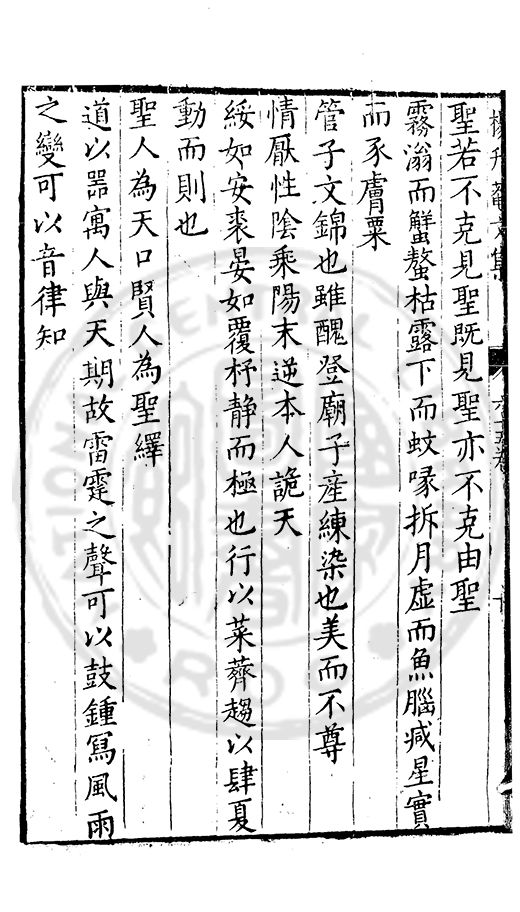 楊升菴文集 六十五卷
聖若不克見聖既見聖亦不克由聖
霧滃而蟹螯枯露下而蚊喙拆月虛而魚腦减星實
而豕膚粟
管子文錦也雖醜登廟子產練染也美而不尊
情厭性陰乘陽末逆本人詭天
綏如安裘晏如覆杅静而極也行以菜薺趨以肆夏
動而則也
聖人為天口賢人為聖繹
道以噐寓人與天期故雷霆之聲可以鼓鍾冩風雨
之變可以音律知